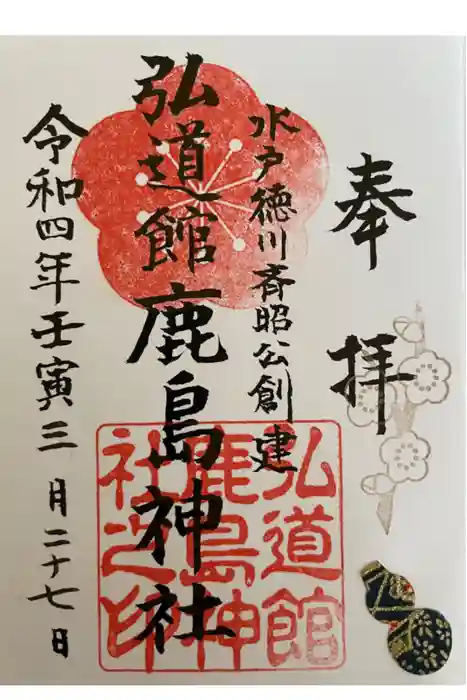 奉拝
水戸徳川斉昭公創建
弘道館鹿島神社
令和四年壬寅三月二十七日
弘道館
鹿島神
社之印